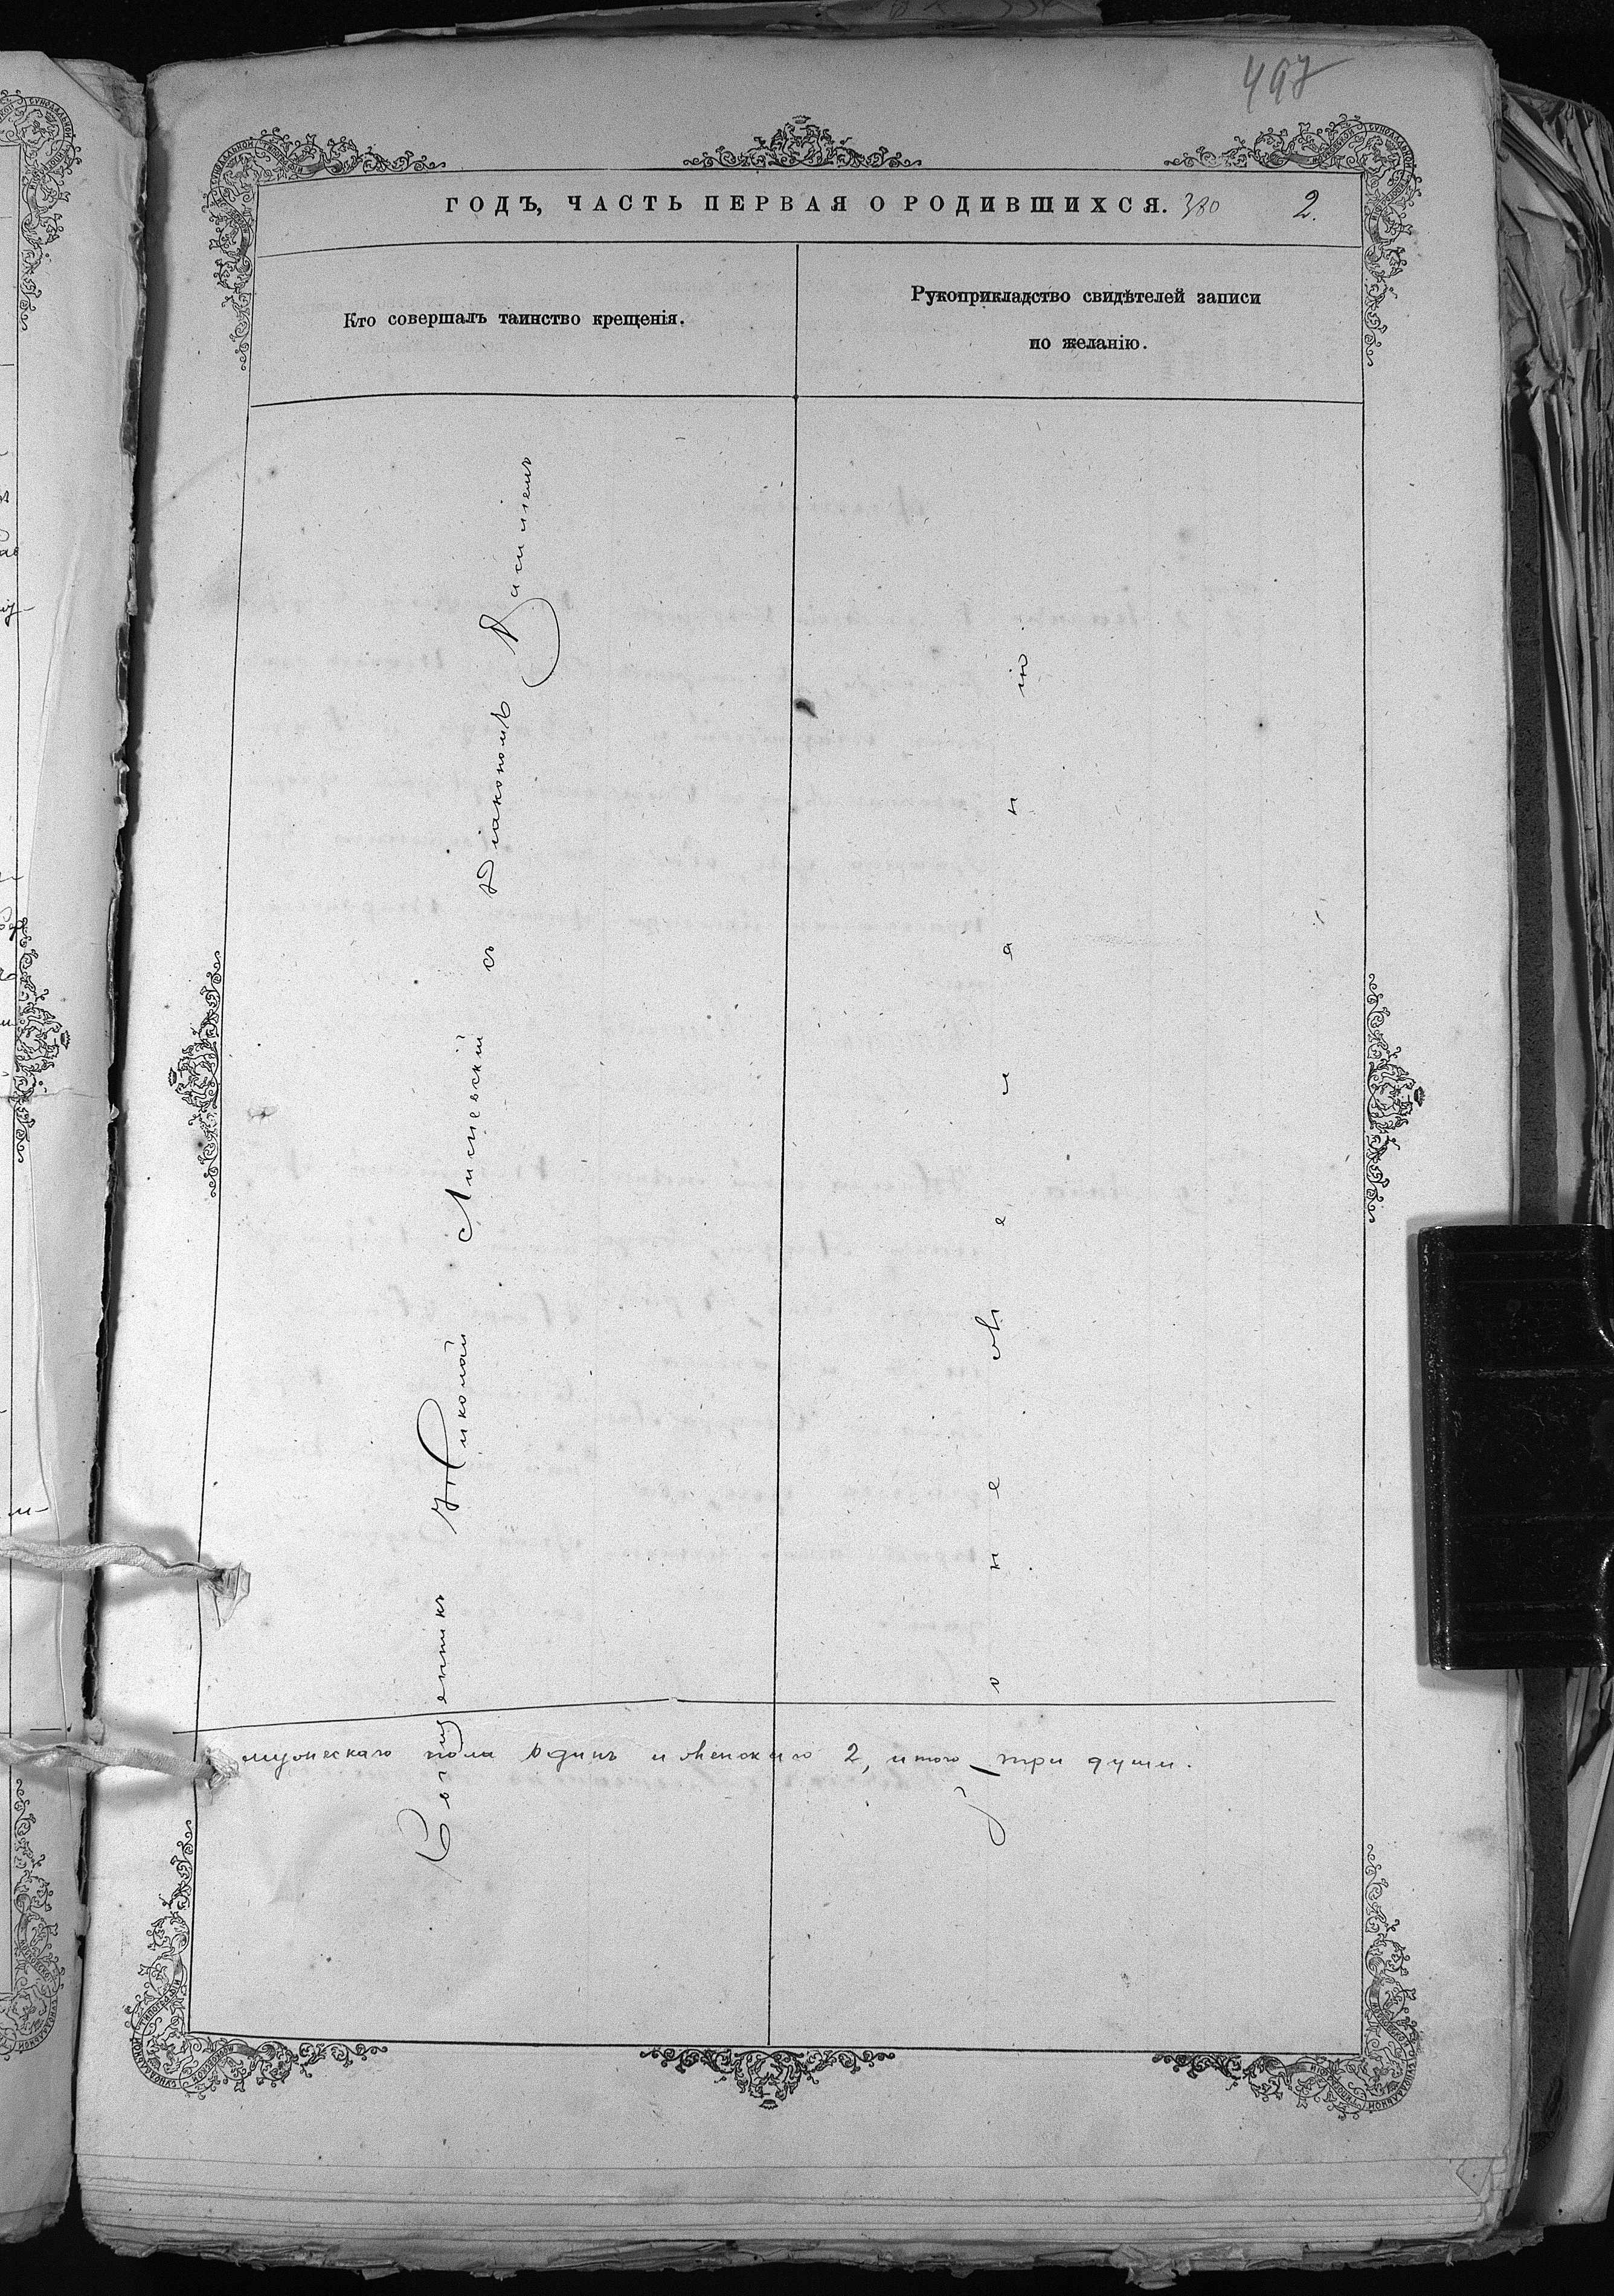 497
ГОДЪ, ЧАСТЬ ПЕРВАЯ О РОДИВШИХСЯ. 380 2.
Кто совершалъ таинство крещенія.
Рукоприкладство свидѣтелей записи
по желанію.
Священникъ Николай Лисневскій съ Діакономъ Василіемъ
по не желанію
мужескаго пола одинъ и женскаго 2, итого три души.